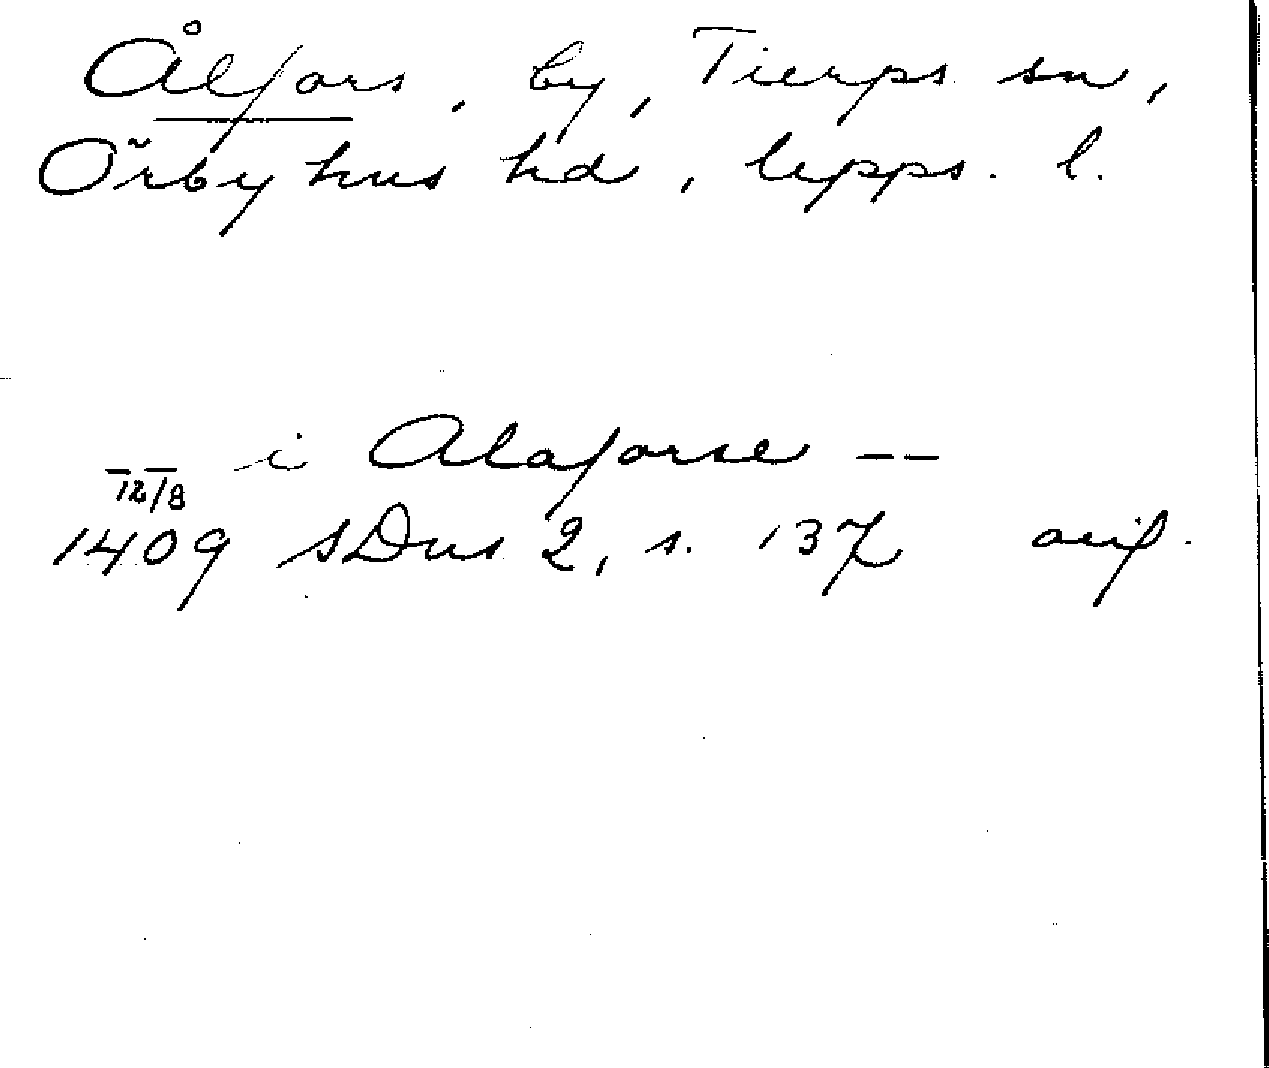 Ålfors, by, Tierps sn,
Örbyhus hd, Upps. l.
— — i Alaforse — —
12/8
1409 SDns 2, s. 137 avf.